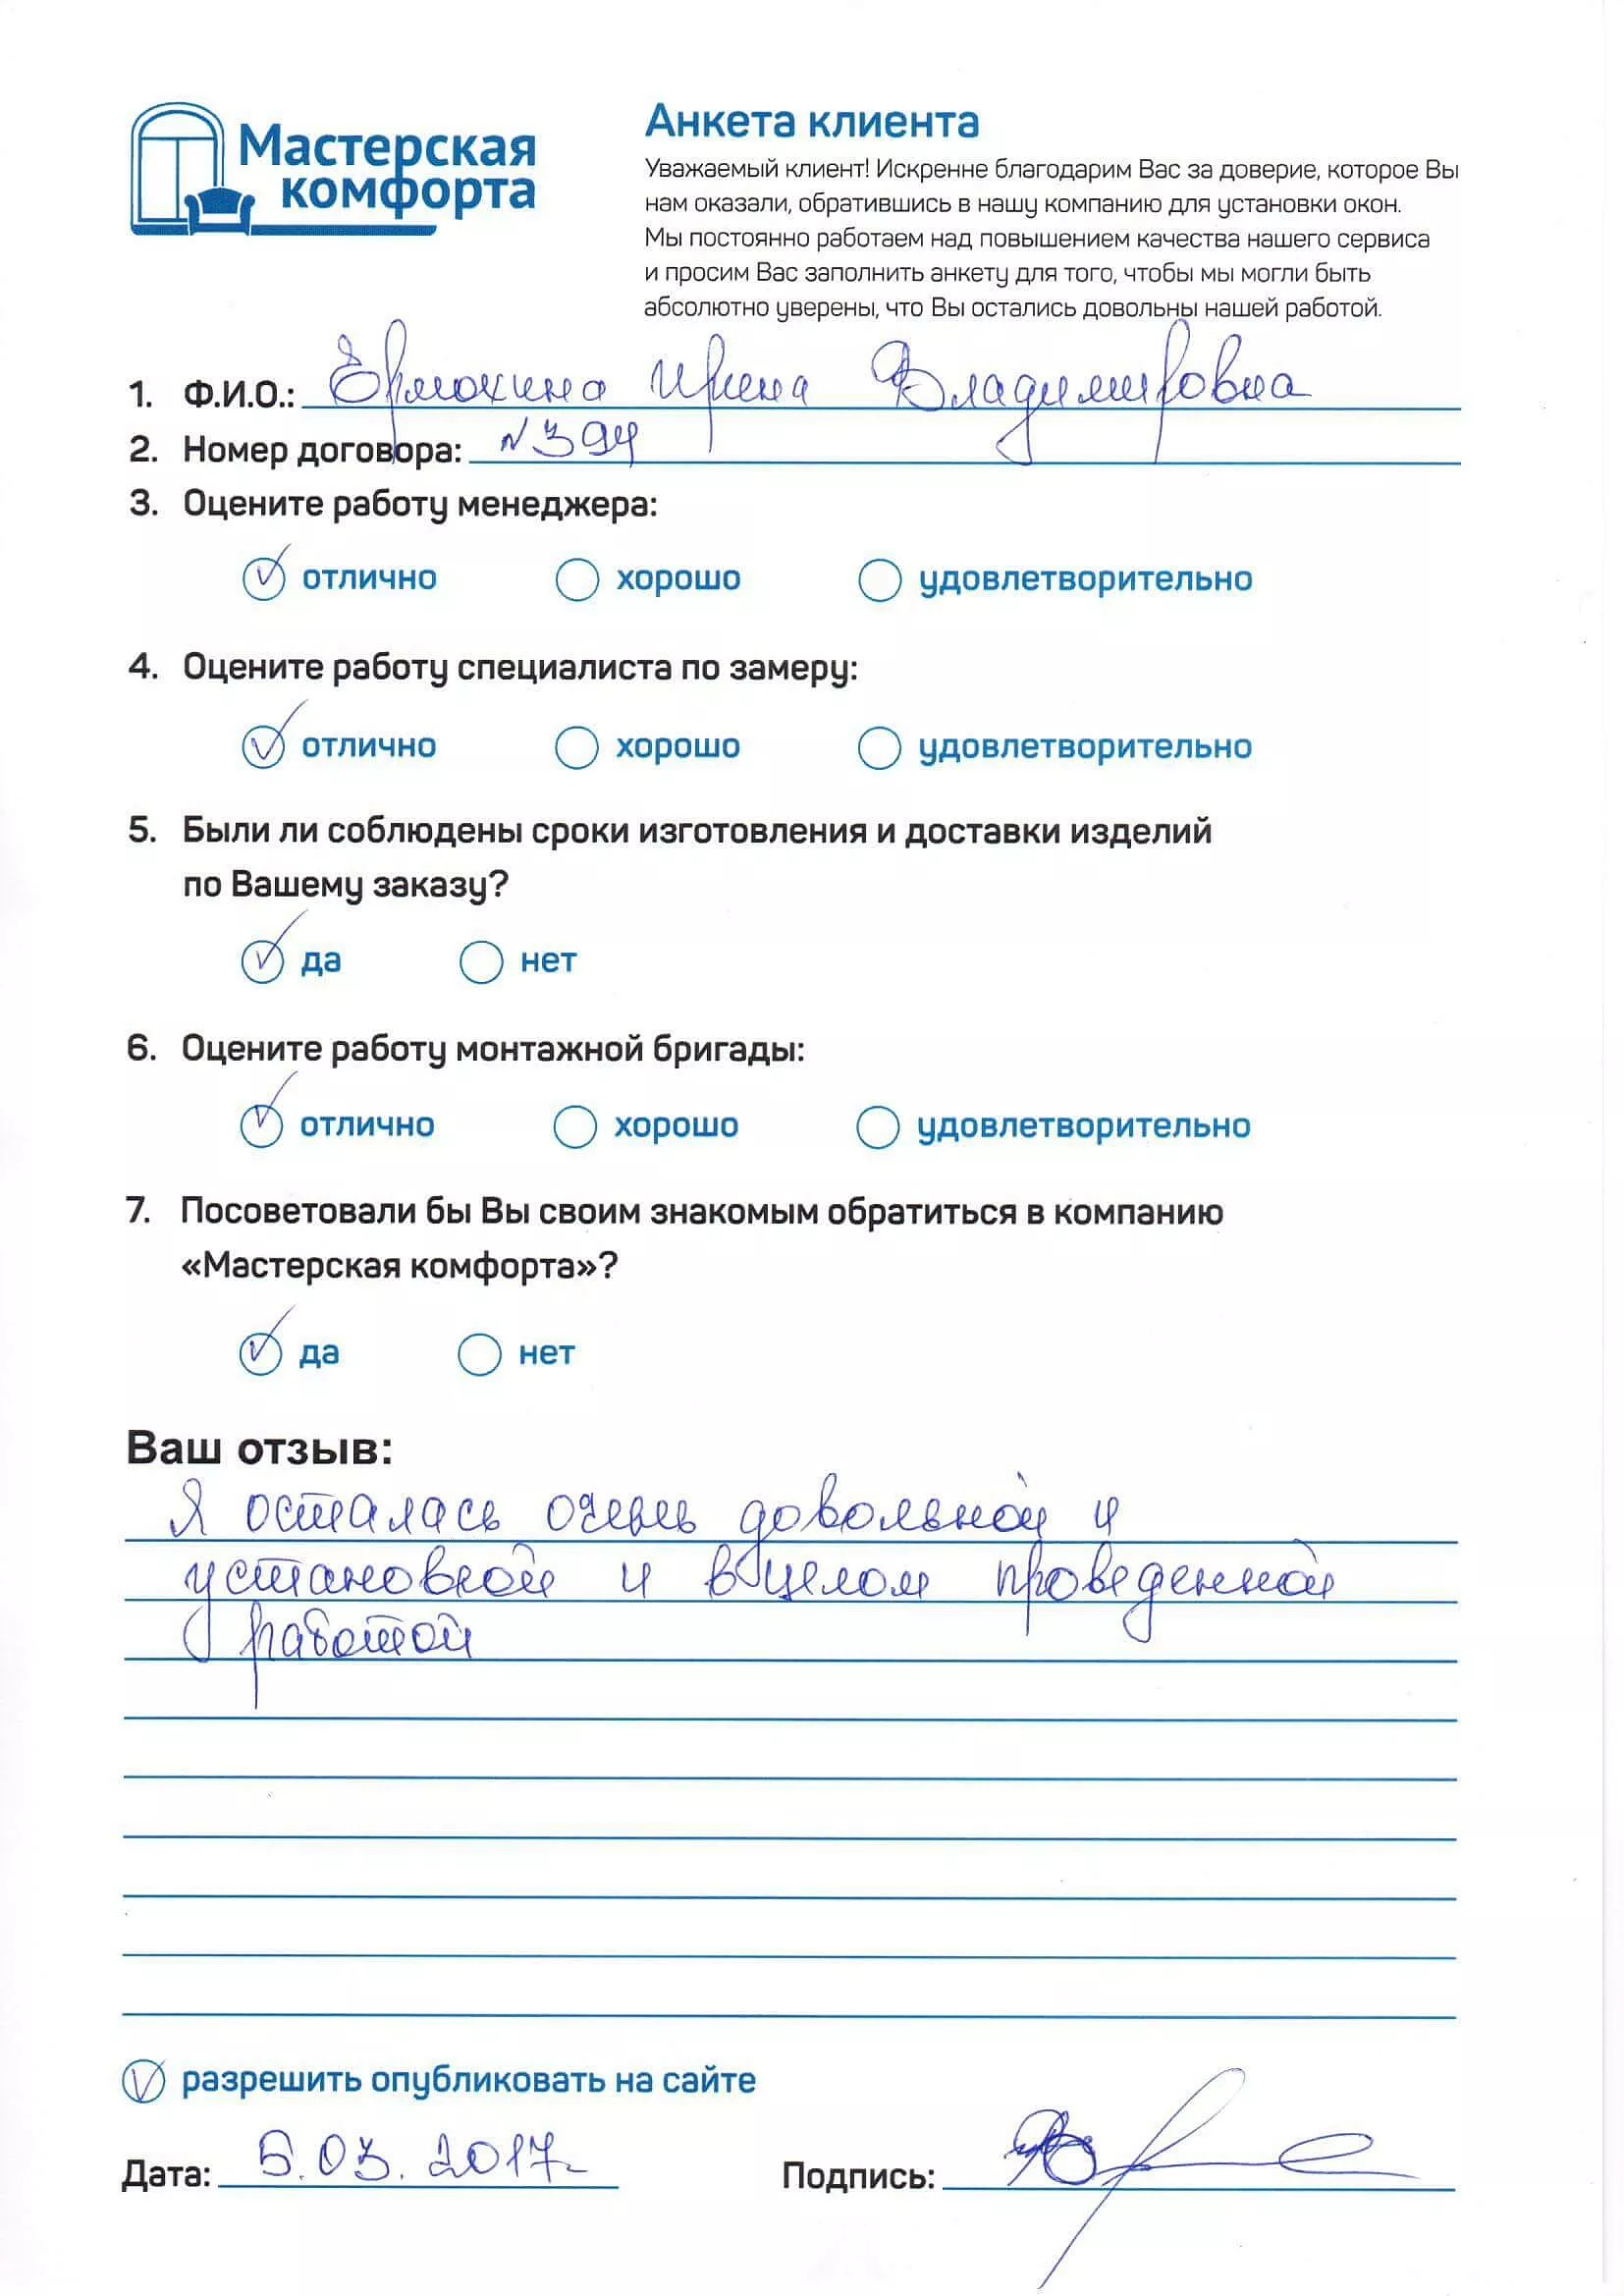 Мастерская
комфорта
Анкета клиента
Уважаемый клиент! Искренне благодарим Вас за доверие, которое Вы
нам оказали, обратившись в нашу компанию для установки окон.
Мы постоянно работаем над повышением качества нашего сервиса
и просим Вас заполнить анкету для того, чтобы мы могли быть
абсолютно уверены, что Вы остались довольны нашей работой.
1. Ф.И.О.: Ермохина Ирина Владимировна
2. Номер договора: N394
3. Оцените работу менеджера:
отлично хорошо удовлетворительно
4. Оцените работу специалиста по замеру:
отлично хорошо удовлетворительно
5. Были ли соблюдены сроки изготовления и доставки изделий
по Вашему заказу?
да нет
6. Оцените работу монтажной бригады:
отлично хорошо удовлетворительно
7. Посоветовали бы Вы своим знакомым обратиться в компанию
«Мастерская комфорта»?
да нет
Ваш отзыв:
Я осталась очень довольной и
установкой и в целом проведенной
работой
разрешить опубликовать на сайте
Дата: 5.03.2017 Подпись: